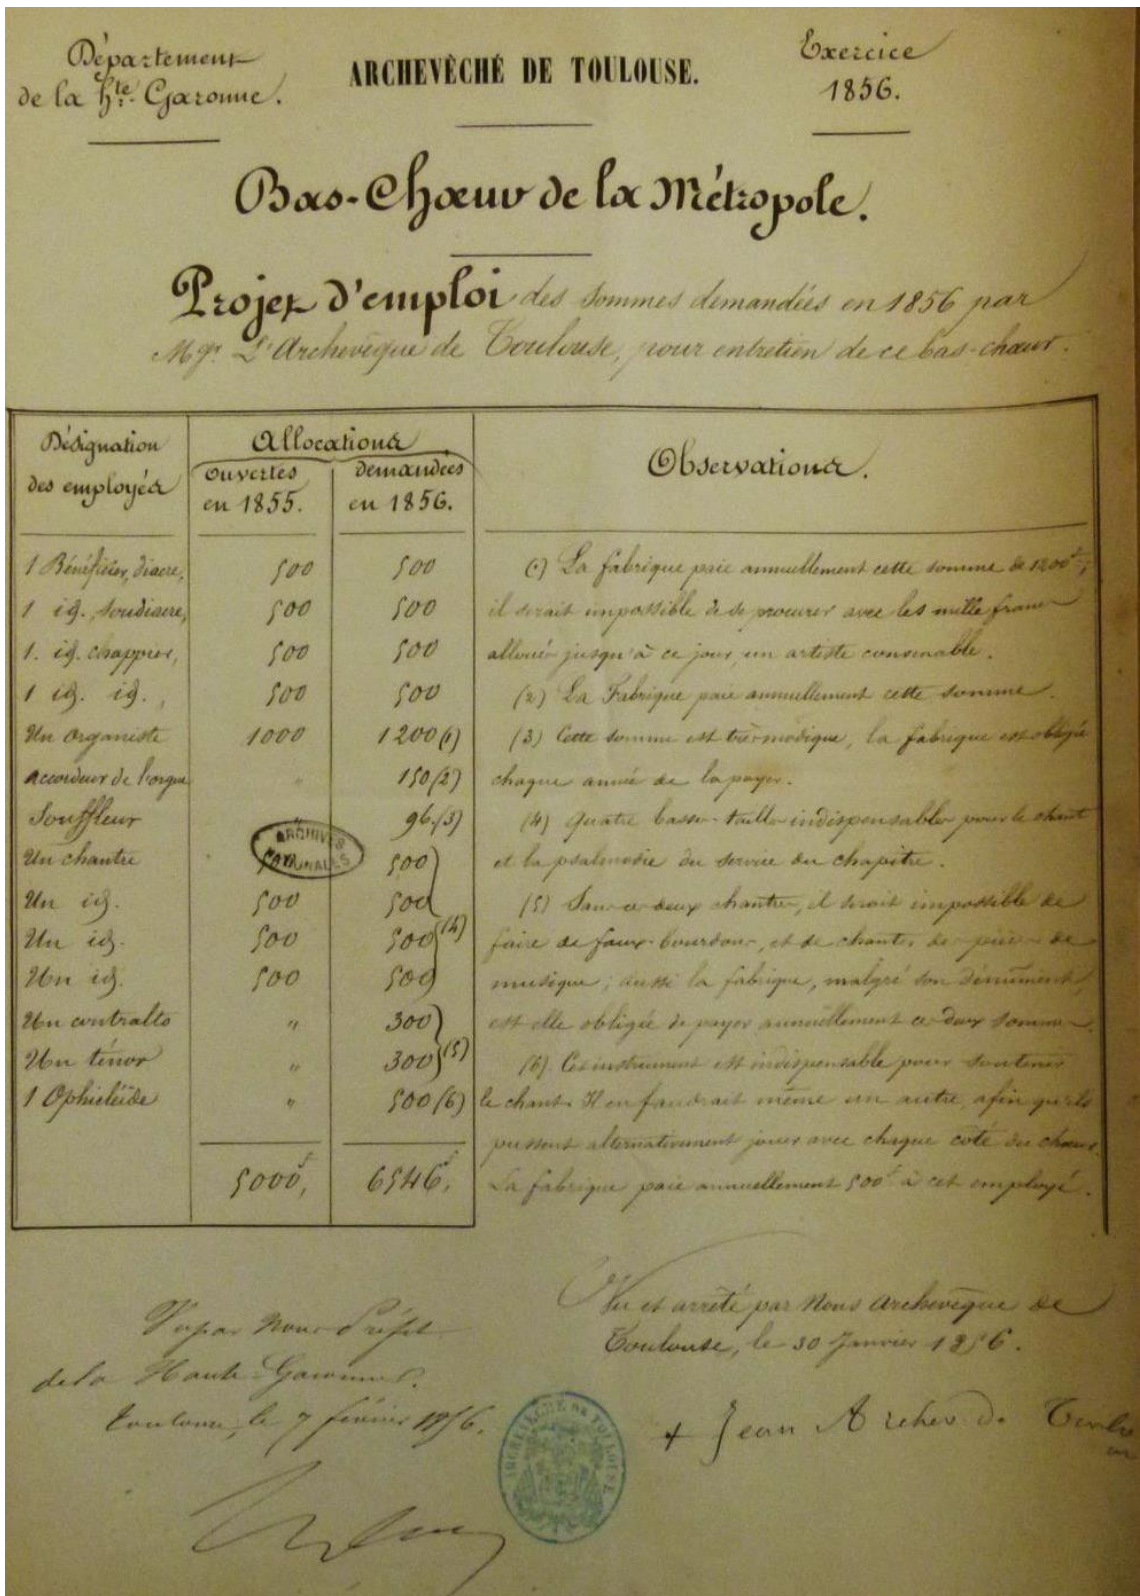 Département
de la hte. Garonne.
ARCHEVÊCHÉ DE TOULOUSE.
Exercice
1856.
Bas-Chœur de la Métropole.
Projet d'emploi des sommes demandées en 1856 par
Mgr. L'Archevêque de Toulouse, pour entretien de ce bas-chœur.
Désignation
des employés
Allocations
ouvertes
en 1855.
demandées
en 1856.
Observations.
1 Bénéficier, diacre, 500 500
1 id., soudiacre, 500 500
1. id. chappier, 500 500
1 id. id., 500 500
Un organiste 1000 1200 (1)
accordeur de l'orgue " 150 (2)
Souffleur " 96. (3)
Un chantre 500 500
Un id. 500 500
Un id. 500 500 (4)
Un id. 500 500
Un contralto " 300
Un ténor " 300 (5)
1 Ophicléïde " 500 (6)
5000f, 6546f,
(1) La fabrique paie annuellement cette somme de 1200f;
il serait impossible de se procurer avec les mille francs
alloués jusqu'à ce jour, un artiste convenable.
(2) La Fabrique paie annuellement cette somme.
(3) Cette somme est très modique, la fabrique est obligée
chaque année de la payer.
(4) Quatre basses-tailles indispensables pour le chant
et la psalmodie du service du chapitre.
(5) Sans ces deux chantres, il serait impossible de
faire de faux-bourdons, et de chanter des pièces de
musique; aussi la fabrique, malgré son dénument,
est elle obligée de payer annuellement ces deux sommes.
(6) Cet instrument est indispensable pour soutenir
le chant. Il en faudrait même un autre, afin qu'ils
pussent alternativement jouer avec chaque côté du chœur.
La fabrique paie annuellement 500f à cet employé.
ARCHIVES
NATIONALES
Vu et arrêté par Nous Archevêque de
Toulouse, le 30 Janvier 1856.
+ Jean Archev. de Toulouse
Vu par Nous Préfet
de la Haute Garonne.
Toulouse, le 7 février 1856.
ARCHEVÊCHÉ DE TOULOUSE